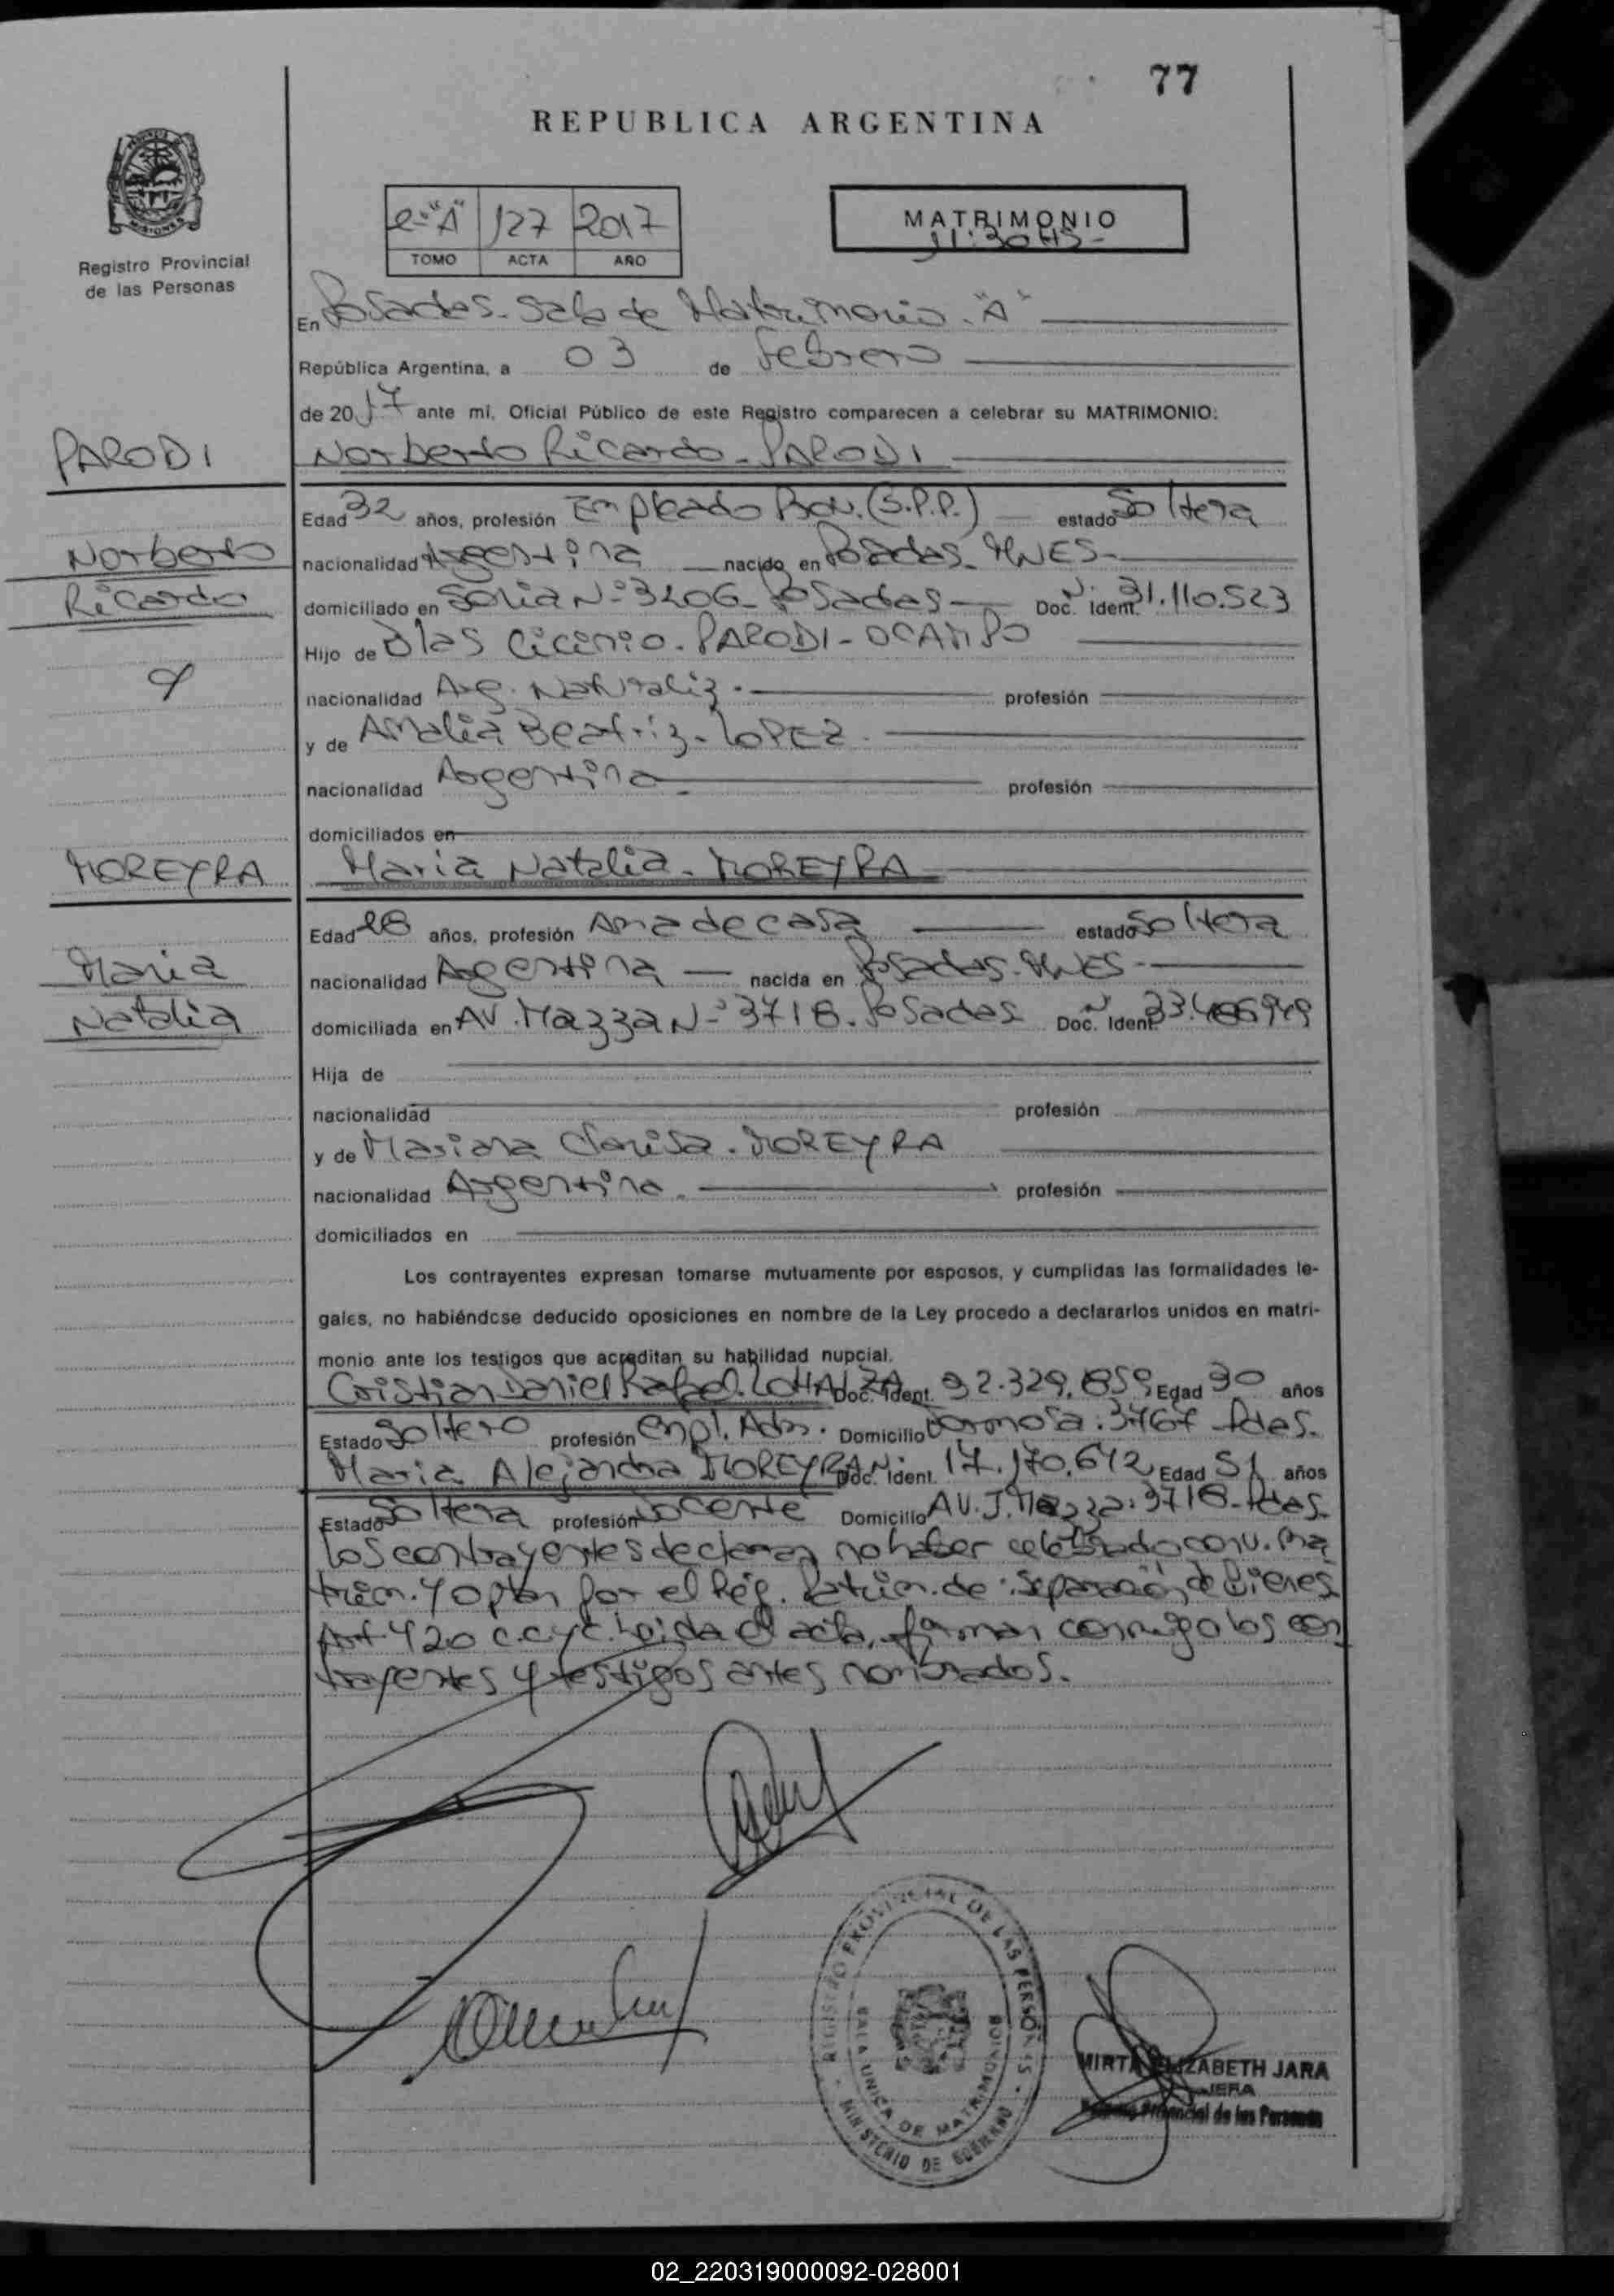 77
REPUBLICA ARGENTINA
2="A" 127 2017
TOMO ACTA AÑO
MATRIMONIO
11:30 HS-
MISIONES
Registro Provincial
de las Personas
En Posadas- Sala de Matrimonio- "A"
República Argentina, a 03 de Febrero
de 2017 ante mí, Oficial Público de este Registro comparecen a celebrar su MATRIMONIO:
PARODI
Norberto Ricardo- PARODI
Edad 32 años, profesión Empleado Prov. (S.P.P.) estado Soltera
Norberto
nacionalidad Argentina nacido en Posadas- MNES-
Ricardo
domiciliado en Soria Nº 3206- Posadas- Doc. Ident. Nº 31.110.523
Hijo de Blas Cicinio- PARODI- OCAMPO
y
nacionalidad Arg. Naturaliz.- profesión
y de Amalia Beatriz- LOPEZ
nacionalidad Argentina- profesión
domiciliados en
MOREYRA
Maria Natalia- MOREYRA
Edad 28 años, profesión Ama de casa estado Soltera
Maria
nacionalidad Argentina nacida en Posadas- MNES-
Natalia
domiciliada en AV. Mazza Nº 3718- Posadas Doc. Ident. Nº 33.486949
Hija de
nacionalidad profesión
y de Mariana Clarisa- MOREYRA
nacionalidad Argentina- profesión
domiciliados en
Los contrayentes expresan tomarse mutuamente por esposos, y cumplidas las formalidades le-
gales, no habiéndose deducido oposiciones en nombre de la Ley procedo a declararlos unidos en matri-
monio ante los testigos que acreditan su habilidad nupcial.
Cristian Daniel Rafael. Doc. Ident. 32.329.859 Edad 30 años
Estado Soltero profesión Empl. Adm. Domicilio Formosa: 3767 Pdas.
Maria Alejandra MOREYRA Doc. Ident. Nº 17.170.642 Edad 51 años
Estado Soltera profesión Docente Domicilio AV. J. Mazza: 3718- Pdas.
Los contrayentes declaran no haber celebrado conv. Ma
trim. y optan por el Rég. Patrim. de: Separación de Bienes
Art 420 c.c y c. Leida el acta, firman conmigo los con
trayentes y testigos antes nombrados.
REGISTRO PROVINCIAL DE LAS PERSONAS
SALA UNICA DE MATRIMONIOS
MINISTERIO DE GOBIERNO
MIRTA ELIZABETH JARA
JEFA
Registro Provincial de las Personas
02_220319000092-028001